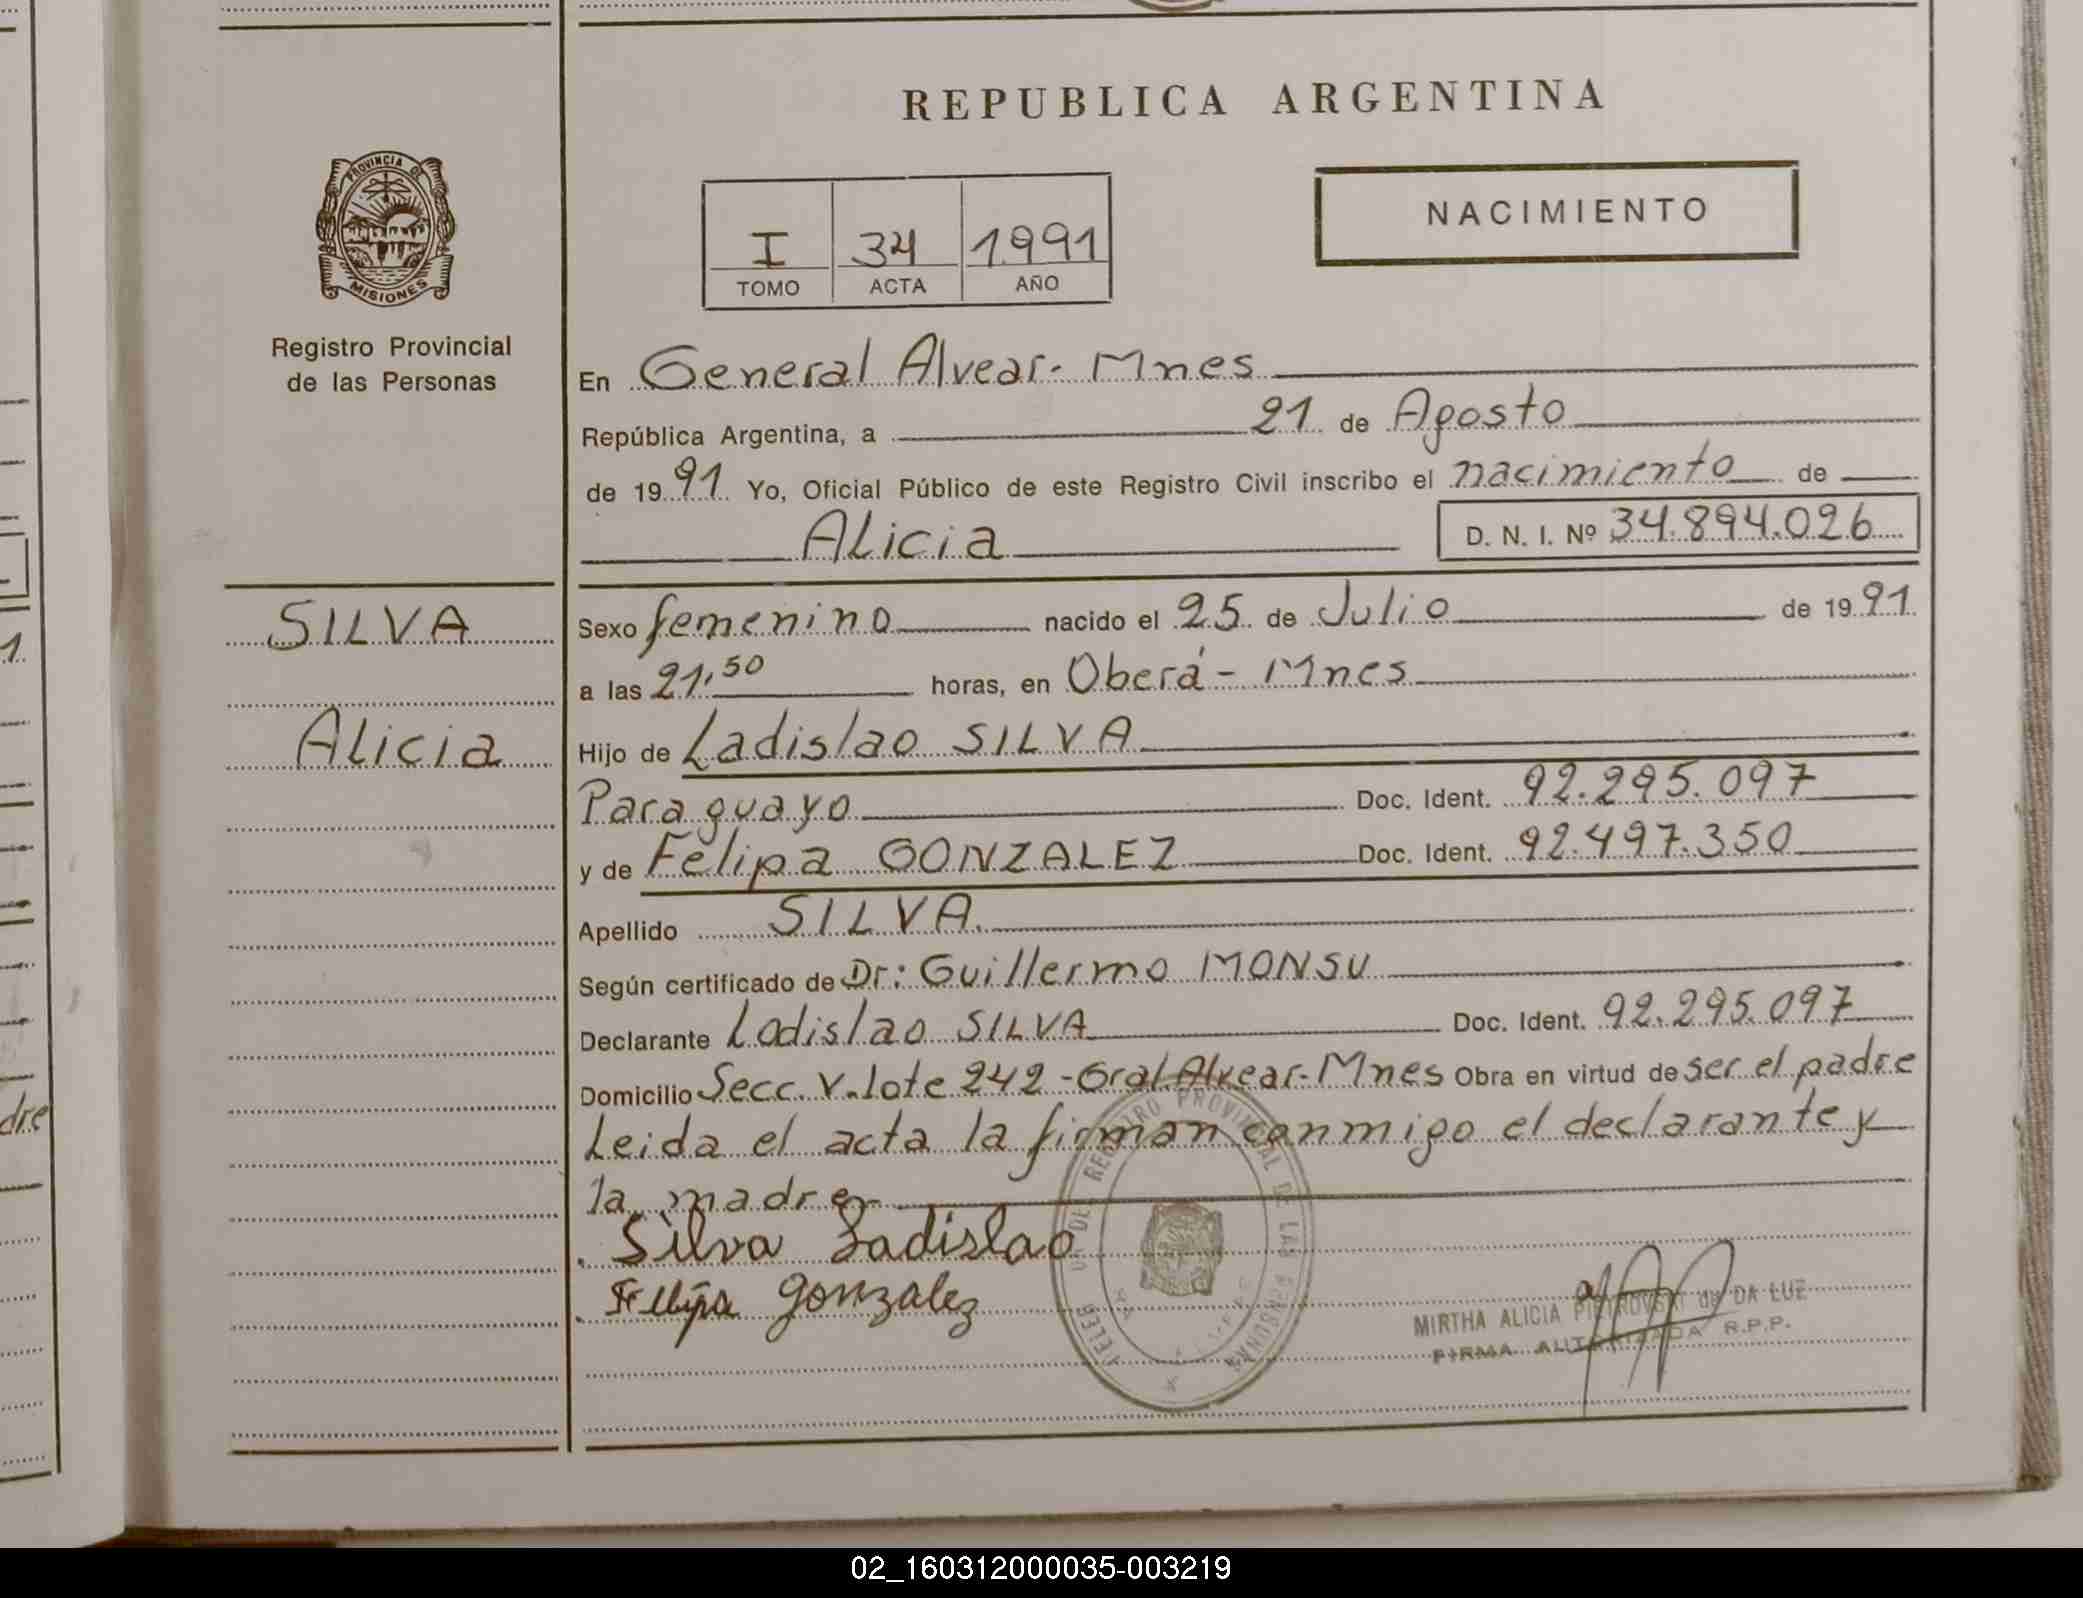 REPUBLICA ARGENTINA
PROVINCIA DE MISIONES
Registro Provincial
de las Personas
I 34 1991
TOMO ACTA AÑO
NACIMIENTO
En General Alvear - Mnes
República Argentina, a 21 de Agosto
de 1991 Yo, Oficial Público de este Registro Civil inscribo el nacimiento de
Alicia D. N. I. Nº 34.894.026
SILVA
Alicia
Sexo femenino nacido el 25 de Julio de 1991
a las 21,50 horas, en Oberá - Mnes
Hijo de Ladislao SILVA
Paraguayo Doc. Ident. 92.295.097
y de Felipa GONZALEZ Doc. Ident. 92.497.350
Apellido SILVA
Según certificado de Dr: Guillermo MONSU
Declarante Ladislao SILVA Doc. Ident. 92.295.097
Domicilio Secc. V. lote 242 - Gral Alvear - Mnes Obra en virtud de ser el padre
Leida el acta la firman conmigo el declarante y
la madre
Silva Ladislao
Felipa Gonzalez
REGISTRO PROVINCIAL DE LAS PERSONAS
MIRTHA ALICIA PIETROVSKI de DA LUZ
FIRMA AUTORIZADA R.P.P.
1
dre
02_160312000035-003219